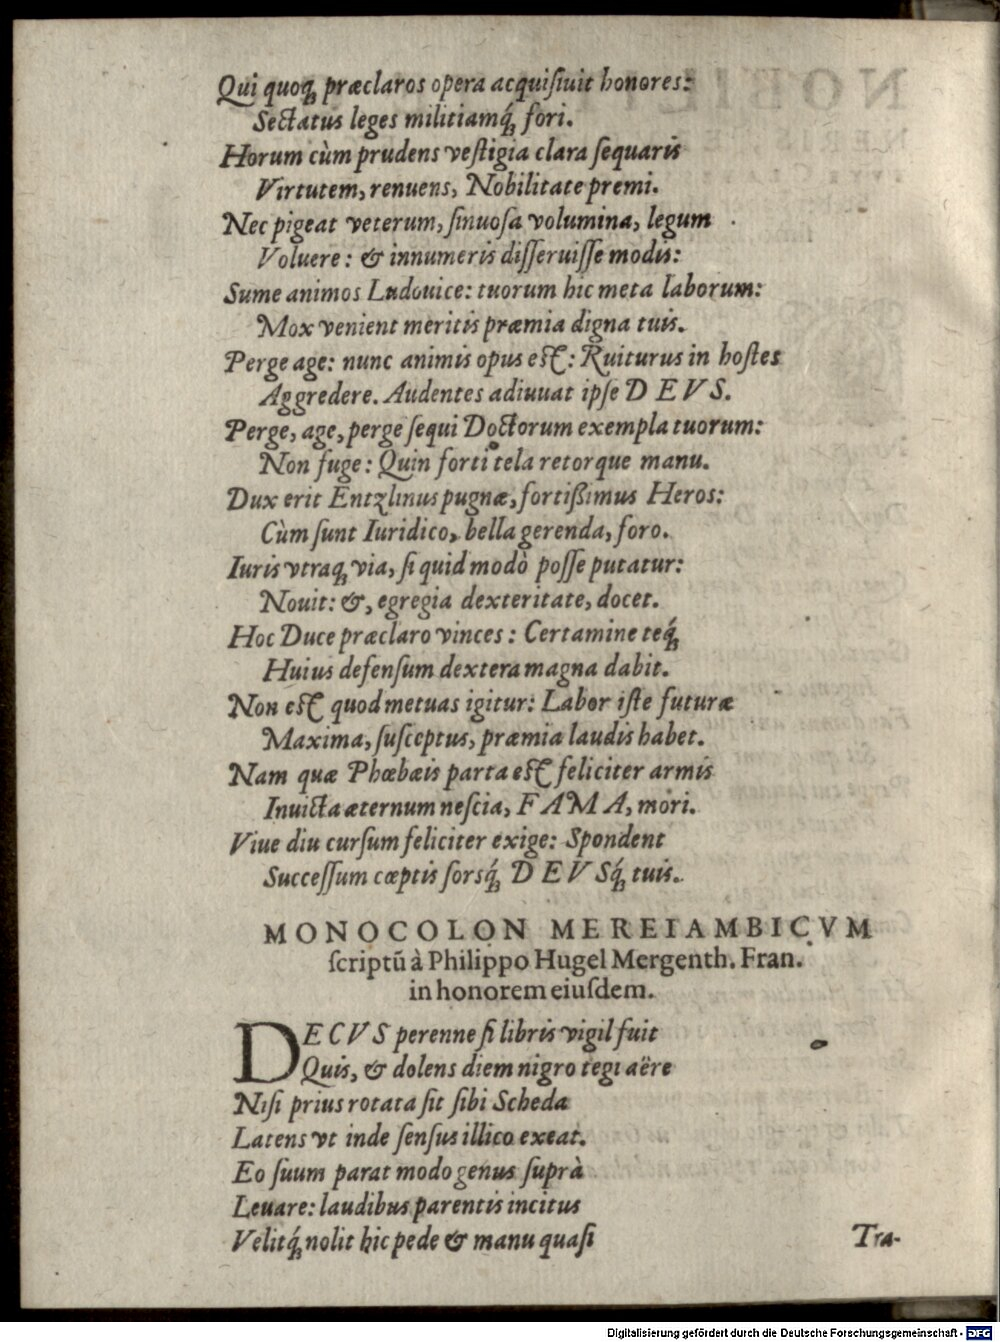 Qui quoq́ꝫ præclaros opera acquiſiuit honores:
Sectatus leges militiamq́ꝫ fori.
Horum cùm prudens veſtigia clara ſequaris
Virtutem, renuens, Nobilitate premi.
Nec pigeat veterum, ſinuoſa volumina, legum
Voluere: & innumeris diſſeruiſſe modis:
Sume animos Ludouice: tuorum hic meta laborum:
Mox venient meritis præmia digna tuis.
Perge age: nunc animis opus eſt: Ruiturus in hoſtes
Aggredere. Audentes adiuuat ipſe D E V S.
Perge, age, perge ſequi Doctorum exempla tuorum:
Non fuge: Quin forti tela retorque manu.
Dux erit Entzlinus pugnæ, fortißimus Heros:
Cùm ſunt Iuridico, bella gerenda, foro.
Iuris vtraqꝫ via, ſi quid modò poſſe putatur:
Nouit: &, egregia dexteritate, docet.
Hoc Duce præclaro vinces: Certamine teq́ꝫ
Huius defenſum dextera magna dabit.
Non eſt quod metuas igitur: Labor iſte futuræ
Maxima, ſuſceptus, præmia laudis habet.
Nam quæ Phœbæis parta eſt feliciter armis
Inuicta æternum neſcia, F A M A, mori.
Viue diu curſum feliciter exige: Spondent
Succeſſum cœptis ſorsq́ꝫ D E V Sq́ꝫ tuis.
MONOCOLON MEREIAMBICVM
ſcriptū à Philippo Hugel Mergenth. Fran.
in honorem eiuſdem.
DECVS perenne ſi libris vigil fuit
Quis, & dolens diem nigro tegi aëre
Niſi prius rotata ſit ſibi Scheda
Latens vt inde ſenſus illico exeat.
Eo ſuum parat modo genus ſuprà
Leuare: laudibus parentis incitus
Velitq́ꝫ nolit hic pede & manu quaſi
Tra-
Digitalisierung gefördert durch die Deutsche Forschungsgemeinschaft - DFG